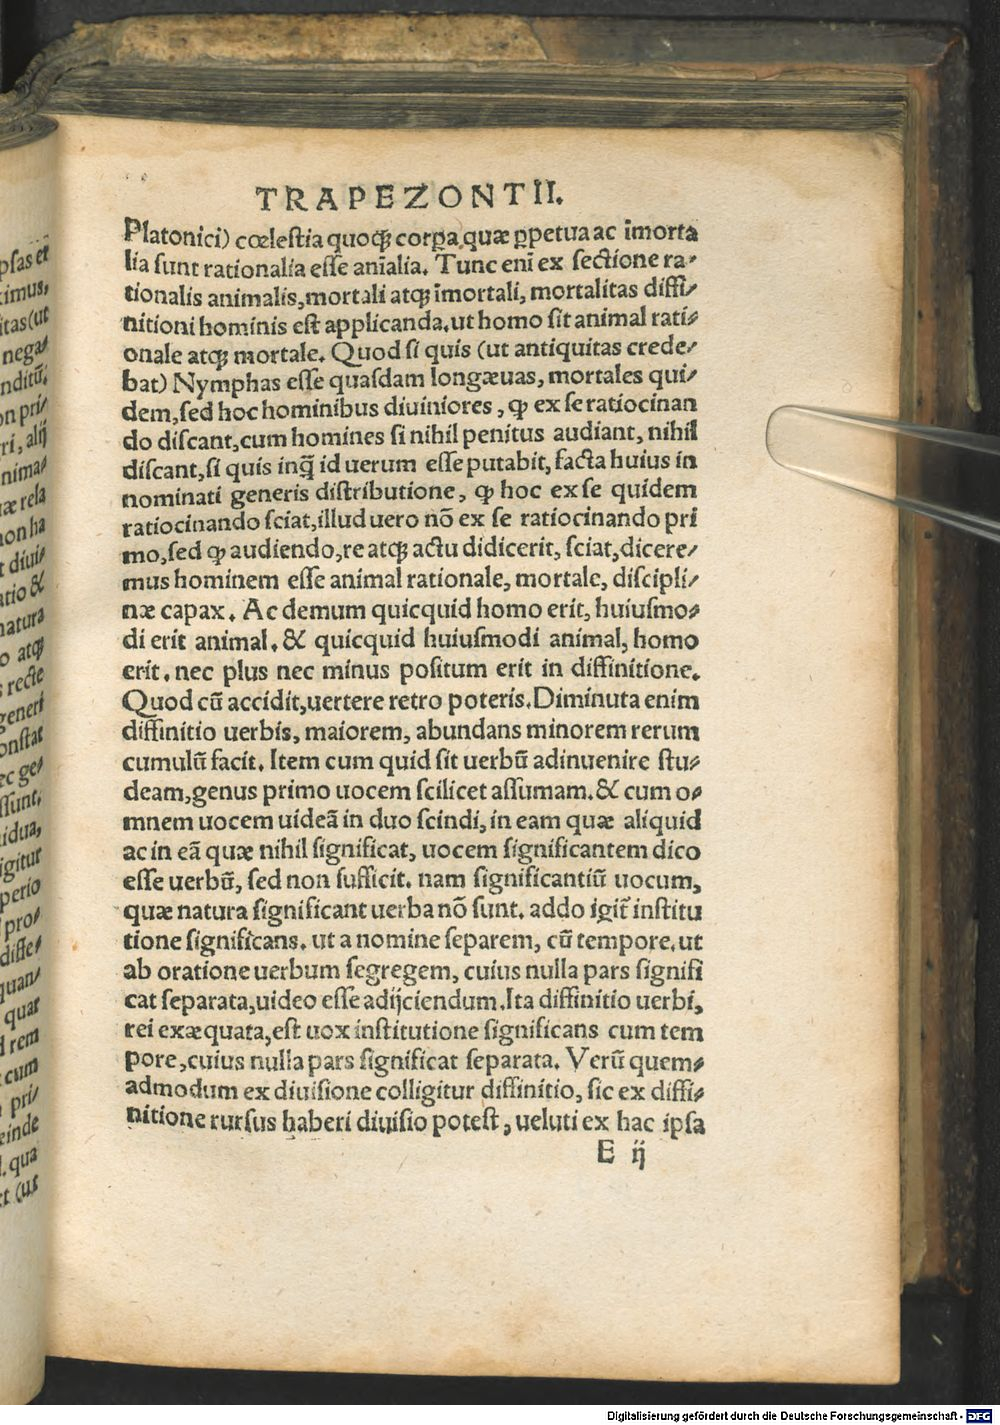 TRAPEZONTII.
Platonici) cœlestia quoqꝫ corꝑa quæ ꝑpetua ac īmorta
lia sunt rationalia esse aniālia. Tunc eni ex sectione ra-
tionalis animalis, mortali atqꝫ īmortali, mortalitas diffi-
nitioni hominis est applicanda. ut homo sit animal rati-
onale atqꝫ mortale. Quod si quis (ut antiquitas crede-
bat) Nymphas esse quasdam longæuas, mortales qui-
dem, sed hoc hominibus diuiniores, ꝙ ex se ratiocinan
do discant, cum homines si nihil penitus audiant, nihil
discant, si quis inq̄ id uerum esse putabit, facta huius in
nominati generis distributione, ꝙ hoc ex se quidem
ratiocinando sciat, illud uero nō ex se ratiocinando pri
mo, sed ꝙ audiendo, re atqꝫ actu didicerit, sciat, dicere-
mus hominem esse animal rationale, mortale, discipli-
næ capax. Ac demum quicquid homo erit, huiusmo-
di erit animal. & quicquid huiusmodi animal, homo
erit. nec plus nec minus positum erit in diffinitione.
Quod cū accidit, uertere retro poteris. Diminuta enim
diffinitio uerbis, maiorem, abundans minorem rerum
cumulū facit. Item cum quid sit uerbū adinuenire stu-
deam, genus primo uocem scilicet assumam. & cum o-
mnem uocem uideā in duo scindi, in eam quæ aliquid
ac in eā quæ nihil significat, uocem significantem dico
esse uerbū, sed non sufficit. nam significantiū uocum,
quæ natura significant uerba nō sunt. addo igit̄ institu
tione significans. ut a nomine separem, cū tempore. ut
ab oratione uerbum segregem, cuius nulla pars signifi
cat separata, uideo esse adijciendum. Ita diffinitio uerbi,
rei exæquata, est uox institutione significans cum tem
pore, cuius nulla pars significat separata. Verū quem-
admodum ex diuisione colligitur diffinitio, sic ex diffi-
nitione rursus haberi diuisio potest, ueluti ex hac ipsa
E ij
psas et
ximus,
itas (ut
nega-
nditū.
on pri-
ri, alij
nima-
uæ rela
non ha
t diui-
atio &
natura
o atqꝫ
s recte
generi
onstat
ec ge-
ssunt.
idua,
igitur
perio
pro-
diffe-
quan-
quar
d rem
cum
pri-
einde
. qua
t (ut
Digitalisierung gefördert durch die Deutsche Forschungsgemeinschaft - DFG